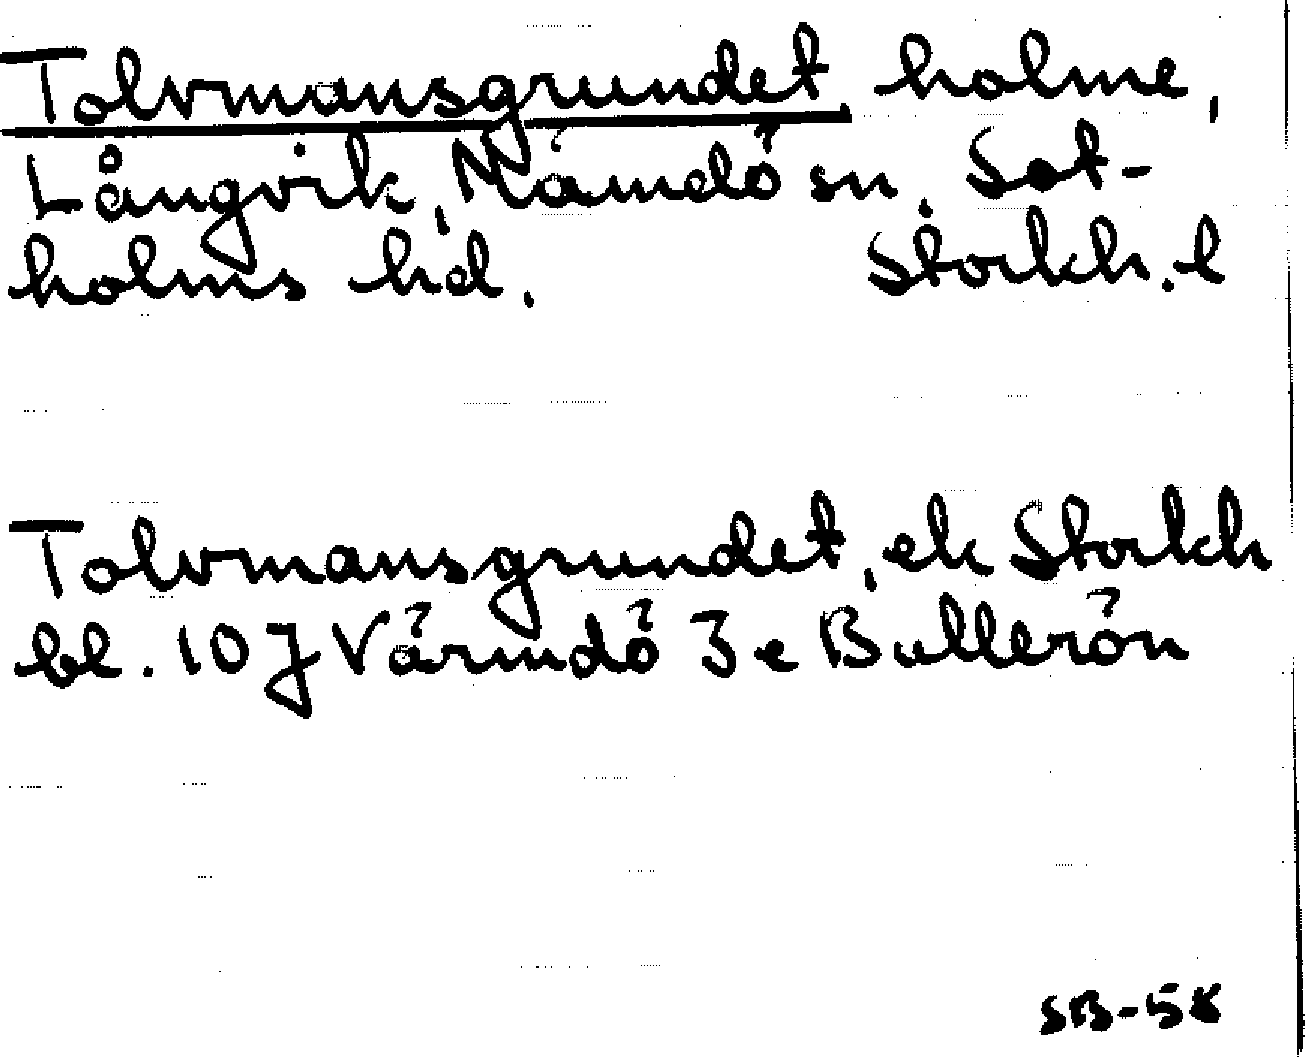 Tolvmansgrundet, holme,
Långvik, Nämdö sn, Sot-
holms hd. Stockh. l
Tolvmansgrundet, ek Stockh
bl. 10 J Värmdö 3 e Bullerön
SB-58